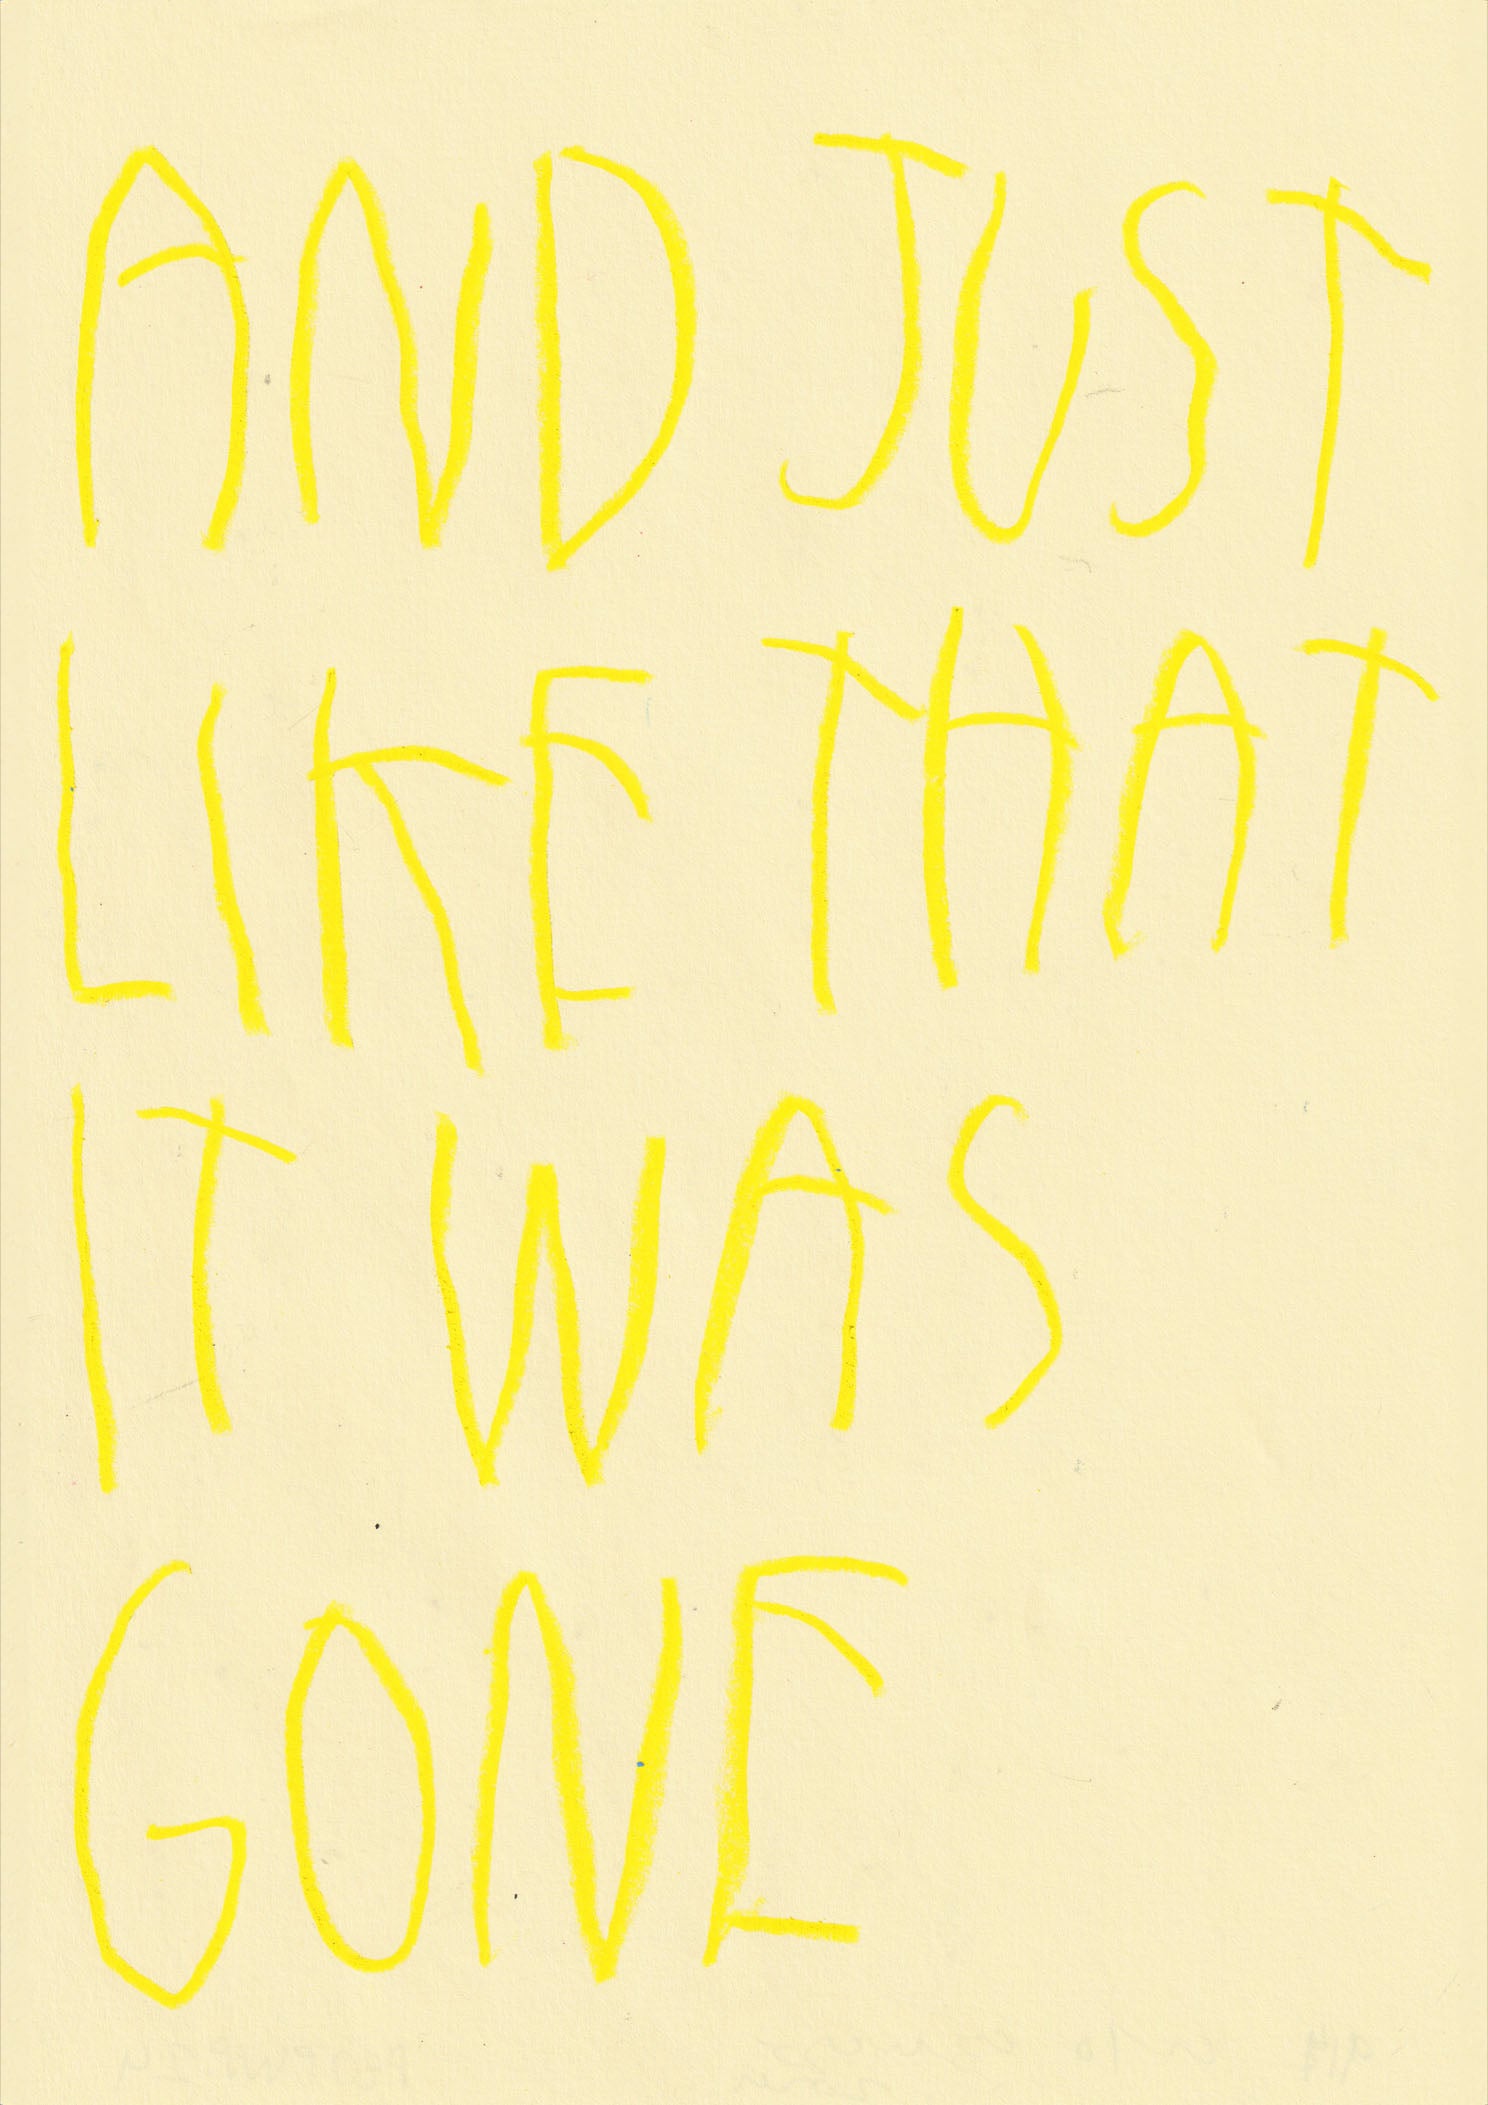 AND JUST
LIKE THAT
IT WAS
GONE